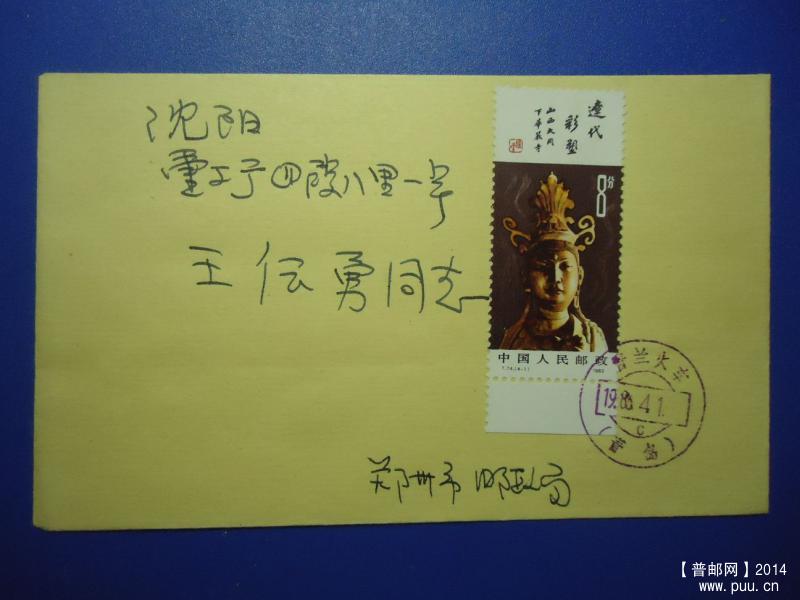 沈阳
重工厅四段八里一号
王传勇同志
郑州市邮政局
遼代
彩塑
山西大同
下華嚴寺
8分
中国人民邮政
T.74.(4-1) 1982
兰火车
19.83.4 1.
C
【普邮网】2014
www.puu.cn